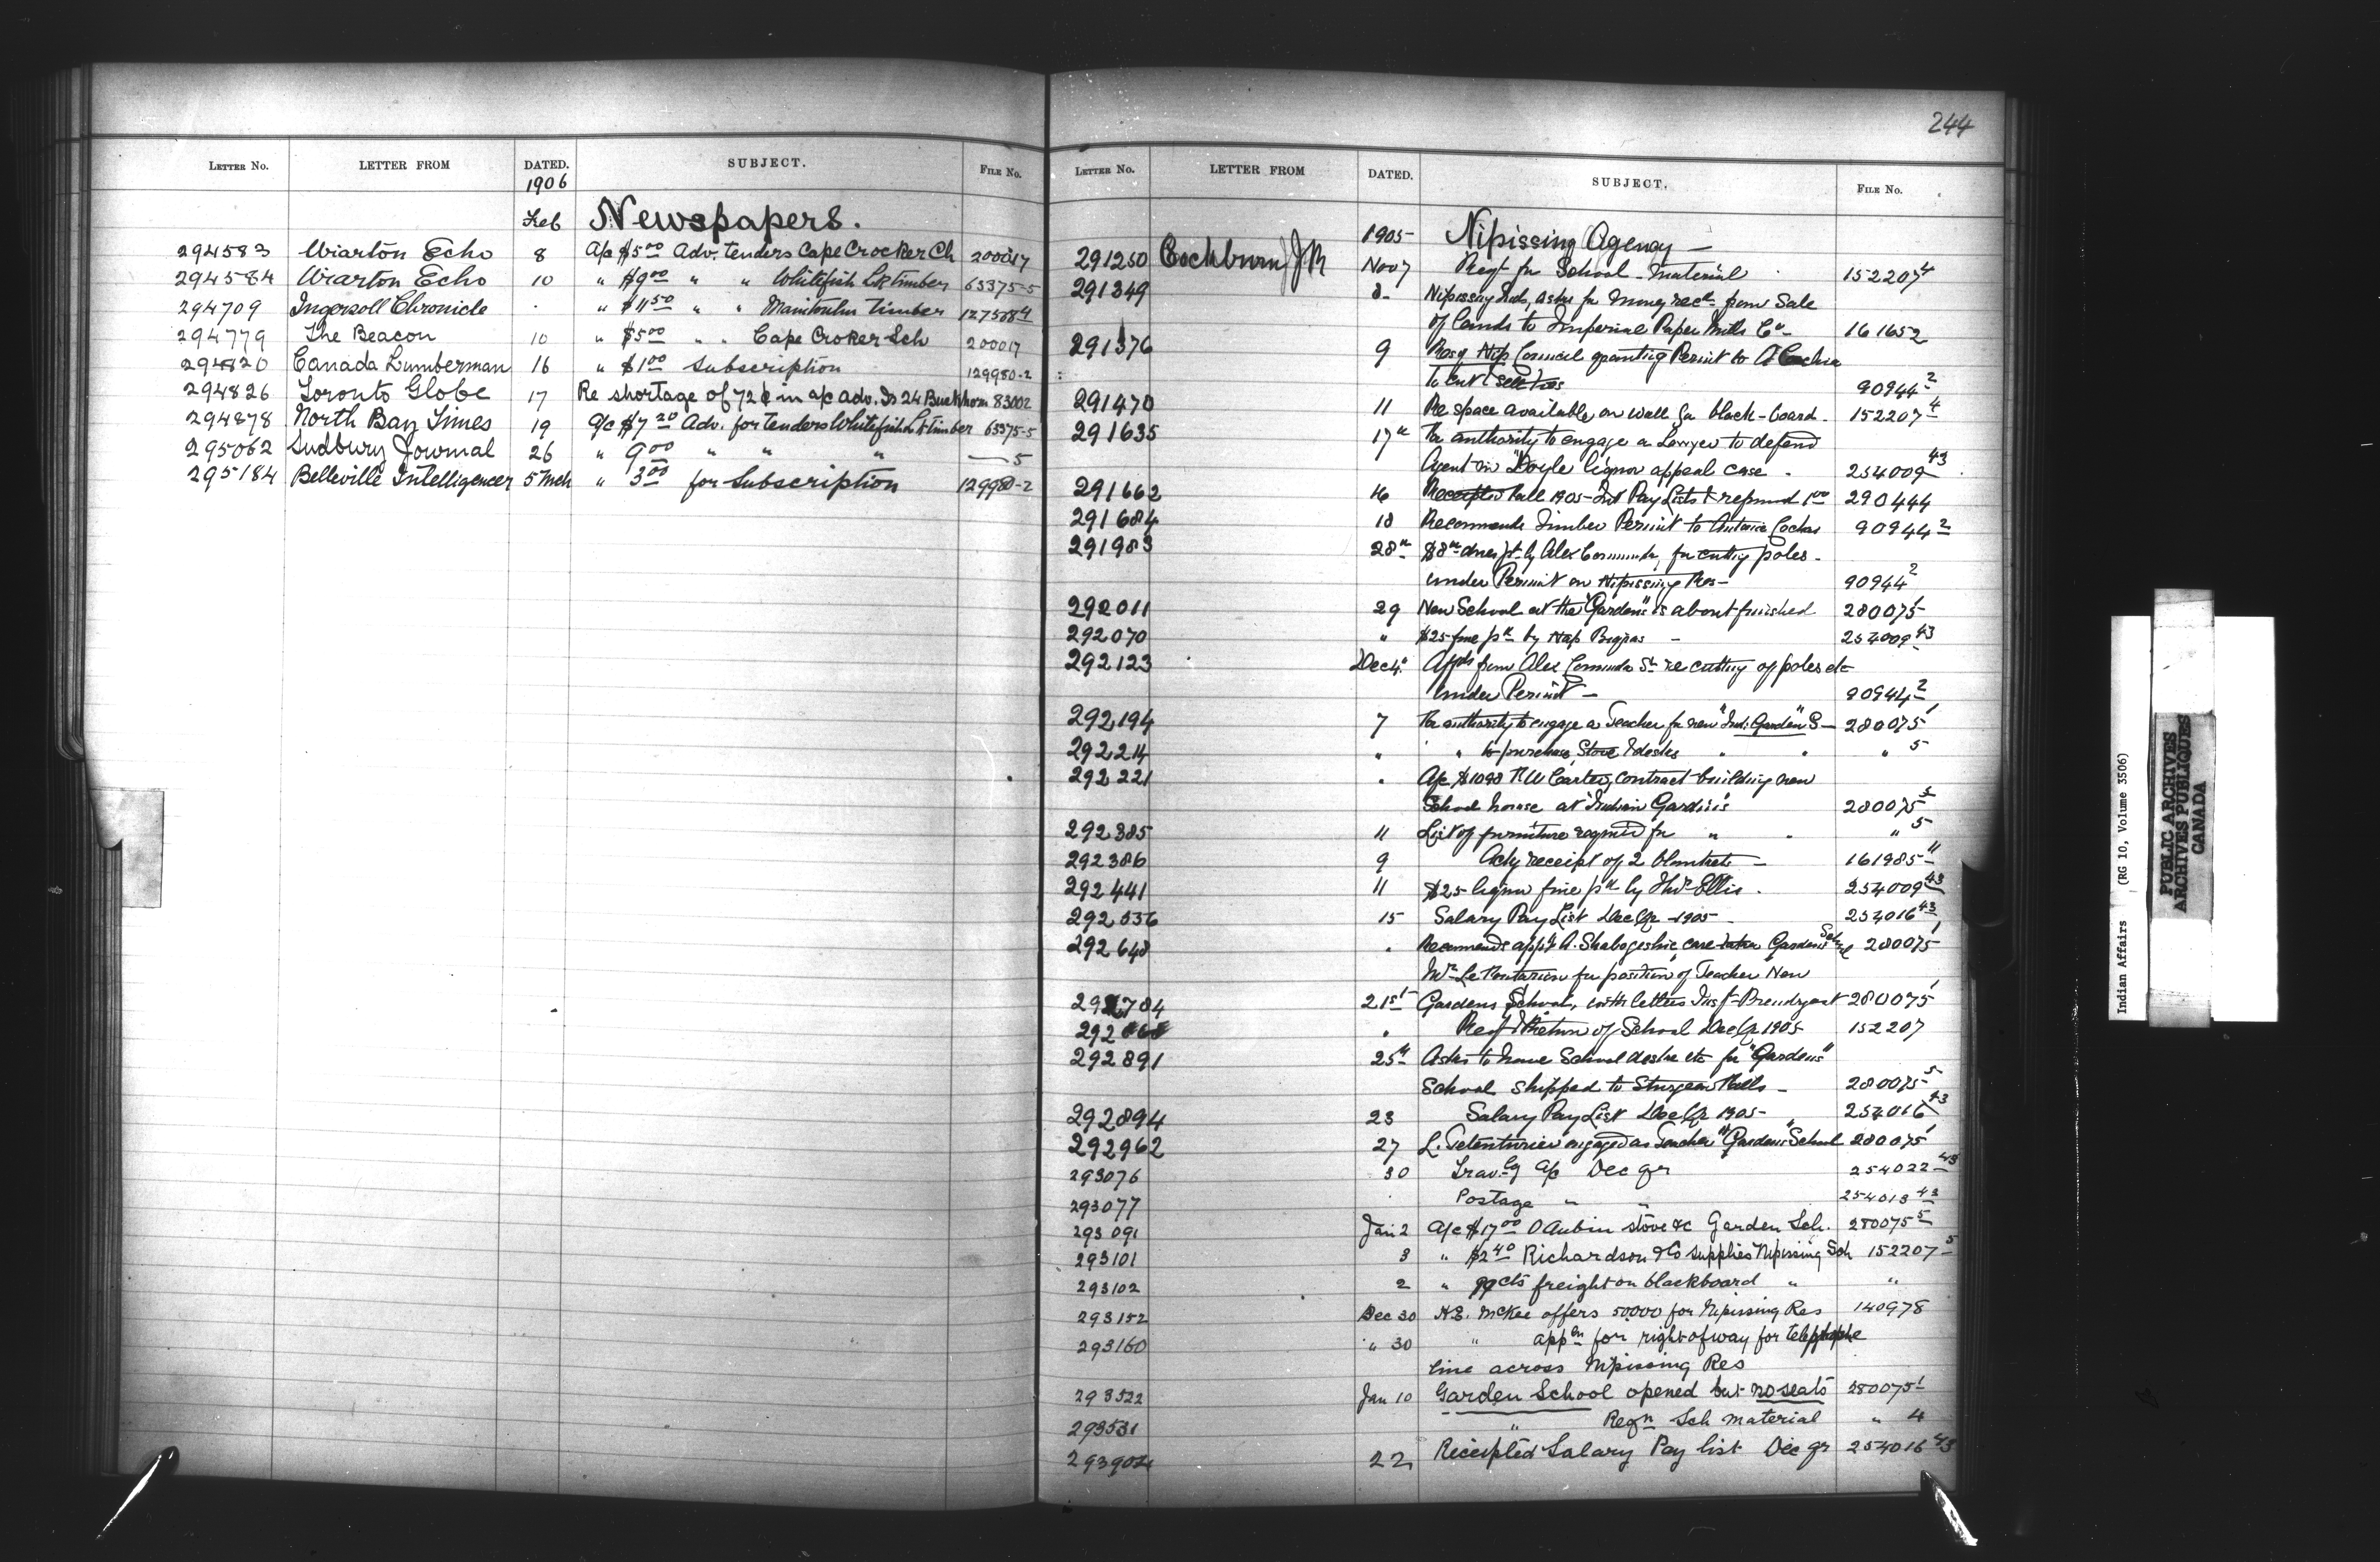 LETTER No. LETTER FROM DATED. SUBJECT. FILE No.
1906
Feb Newspapers.
294583 Wiarton Echo 8 A/c $5.00 Adv. tenders Cape Crocker Ch 200017
294584 Wiarton Echo 10 " $9.00 " " Whitefish Lk timber 63375-5
294709 Ingersoll Chronicle . " $11.50 " " Manitoulin timber 127508-4
294779 The Beacon 10 " $5.00 " " Cape Croker Sch 200017
294820 Canada Lumberman 16 " $1.00 Subscription 129980-2
294826 Toronto Globe 17 Re shortage of 72¢ in a/c adv. Is 24 Buckhorn 83002
294878 North Bay Times 19 a/c $7.20 Adv. for tenders Whitefish Lk timber 63375-5
295062 Sudbury Journal 26 " 9.00 " " " — 5
295184 Belleville Intelligencer 5 Mch " 3.00 for Subscription 129980-2
244
LETTER No. LETTER FROM DATED. SUBJECT. FILE No.
1905 Nipissing Agency —
291250 Cockburn, J R Nov 7 Reqt for School Material 152207 4
291349 8 Nipissing Inds, asks for money recd from Sale
of lands to Imperial Paper Mills Co 161652
291376 9 Resn Nip Council granting Permit to A
to cut 90944 2
291470 11 Re space available on wall for black-board. 152207 4
291635 17th For authority to engage a Lawyer to defend
Agent in Doyle liquor appeal case. 254009 43
291662 16 Receipted Fall 1905 Int Pay Lists & refund 1.00 290444
291684 18 Recommends Timber Permit to Antoine 90944 2
291983 28th $8 dues pd by Alex for cutting poles
under Permit on Nipissing Res 90944 2
292011 29 New School at the "Gardens" is about finished 280075
292070 " $25 fine pd by Nap 254009 43
292123 Dec 4 from Alex re cutting of poles etc
under Permit — 90944 2
292194 7 For authority to engage a Teacher for new "Ind. Garden" S— 280075 1
292214 " " to purchase Stove & desks " " " 5
292221 " A/c $1098 R W Carter, contract building new
School house at Indian Gardens 280075 5
292385 11 List of furniture required for " " " 5
292386 9 Ackg receipt of 2 blankets — 161985 11
292441 11 $25 liquor fine pd by Thos Ellis. 254009 43
292536 15 Salary Pay List Dec Qr 1905 254016 43
292648 " Recommends appt A. Shabogeshic, care taker Gardens School 280075 1
for position of Teacher New
292784 21st Gardens School, with letters 280075 1
292 " Reqt & Return of School Dec Qr 1905 152207
292891 25th Asks to have School desks etc for "Gardens"
School shipped to Sturgeon Falls — 280075 5
292894 23 Salary Pay List Dec Qr 1905 254016 43
292962 27 L. engaged as Teacher at "Gardens" School 280075 1
293076 30 Travlg a/c Dec qr 254022 43
293077 Postage " " 254013 43
293091 Jan 2 A/c $17.00 O Aubin stove &c Garden Sch. 280075 5
293101 3 " $2.40 Richardson & Co supplies Nipissing Sch 152207 5
293102 2 " 99cts freight on blackboard " "
293152 Dec 30 H.E. McKee offers 50000 for Nipissing Res 140978
293160 " 30 " appln for right of way for telephone
line across Nipissing Res
293522 Jan 10 Garden School opened but no seats 280075 1
293531 " Reqn Sch material " 4
293902 22 Receipted Salary Pay list Dec qr 254016 43
Indian Affairs (RG 10, Volume 3506)
PUBLIC ARCHIVES
ARCHIVES PUBLIQUES
CANADA